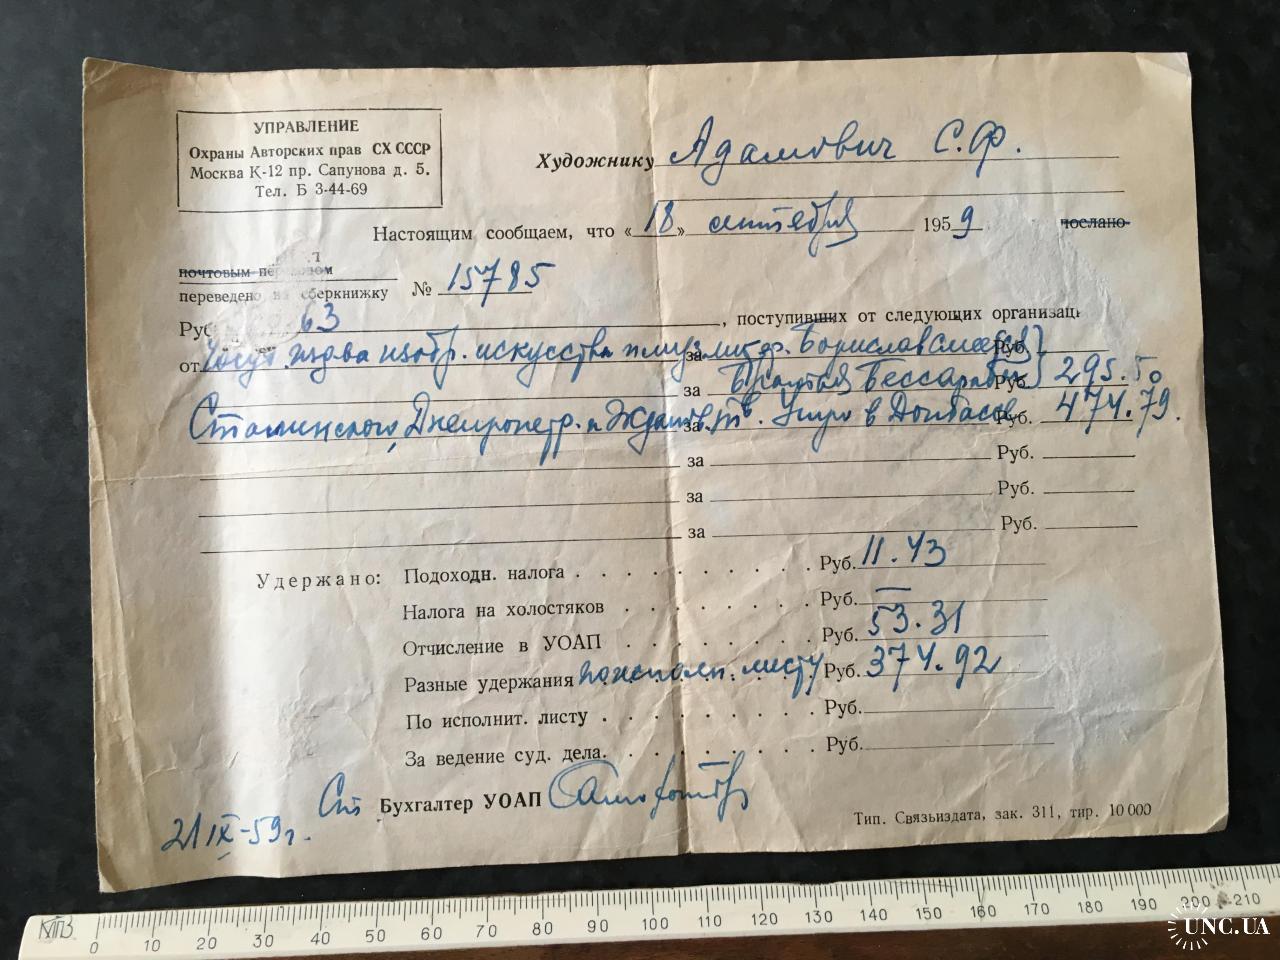 УПРАВЛЕНИЕ
Охраны Авторских прав СХ СССР
Москва К-12 пр. Сапунова д. 5.
Тел. Б 3-44-69
Художнику Адамович С.Ф.
Настоящим сообщаем, что «18» сентября 1959 послано
почтовым переводом
переведено на сберкнижку № 15785
Руб. 63, поступивших от следующих организаций
от изобр. искусства за Борислав смеется Руб.
за Братья Бессарабы Руб. 295.50
Сталинского, Днепропетр. и Ждан. за Утро в Донбассе Руб. 474.79.
за Руб.
за Руб.
за Руб.
Удержано: Подоходн. налога Руб. 11.43
Налога на холостяков Руб. —
Отчисление в УОАП Руб. 53.31
Разные удержания по исполн. листу Руб. 374.92
По исполнит. листу Руб.
За ведение суд. дела Руб.
Ст Бухгалтер УОАП
21 IX-59 г.
Тип. Связьиздата, зак. 311, тир. 10 000
0 10 20 30 40 50 60 70 80 90 100 110 120 130 140 150 160 170 180 190 200 210
UNC.UA